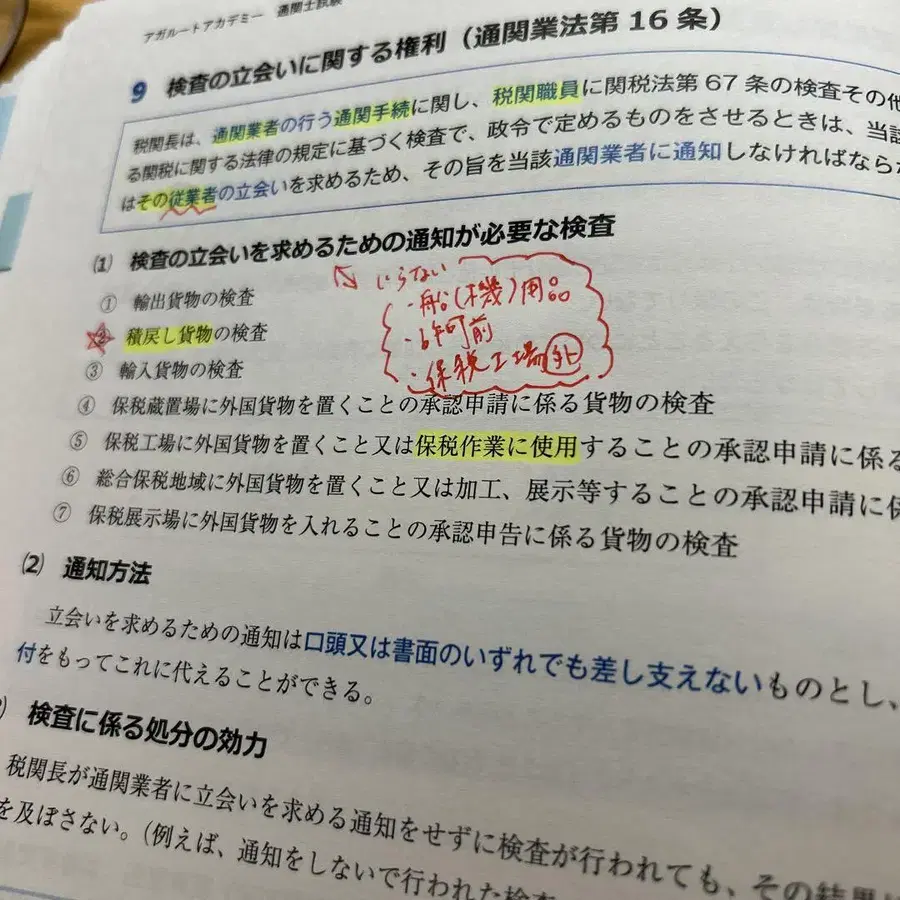 アガルートアカデミー 通関士試験
9 検査の立会いに関する権利（通関業法第 16 条）
税関長は、通関業者の行う通関手続に関し、税関職員に関税法第 67 条の検査その他
る関税に関する法律の規定に基づく検査で、政令で定めるものをさせるときは、当該
はその従業者の立会いを求めるため、その旨を当該通関業者に通知しなければなら
⑴ 検査の立会いを求めるための通知が必要な検査
いらない
・船(機)用品
・許可前
・保税工場外
① 輸出貨物の検査
② 積戻し貨物の検査
③ 輸入貨物の検査
④ 保税蔵置場に外国貨物を置くことの承認申請に係る貨物の検査
⑤ 保税工場に外国貨物を置くこと又は保税作業に使用することの承認申請に係る
⑥ 総合保税地域に外国貨物を置くこと又は加工、展示等することの承認申請に係
⑦ 保税展示場に外国貨物を入れることの承認申告に係る貨物の検査
⑵ 通知方法
立会いを求めるための通知は口頭又は書面のいずれでも差し支えないものとし、
付をもってこれに代えることができる。
検査に係る処分の効力
税関長が通関業者に立会いを求める通知をせずに検査が行われても、その結果
を及ぼさない。（例えば、通知をしないで行われた検査